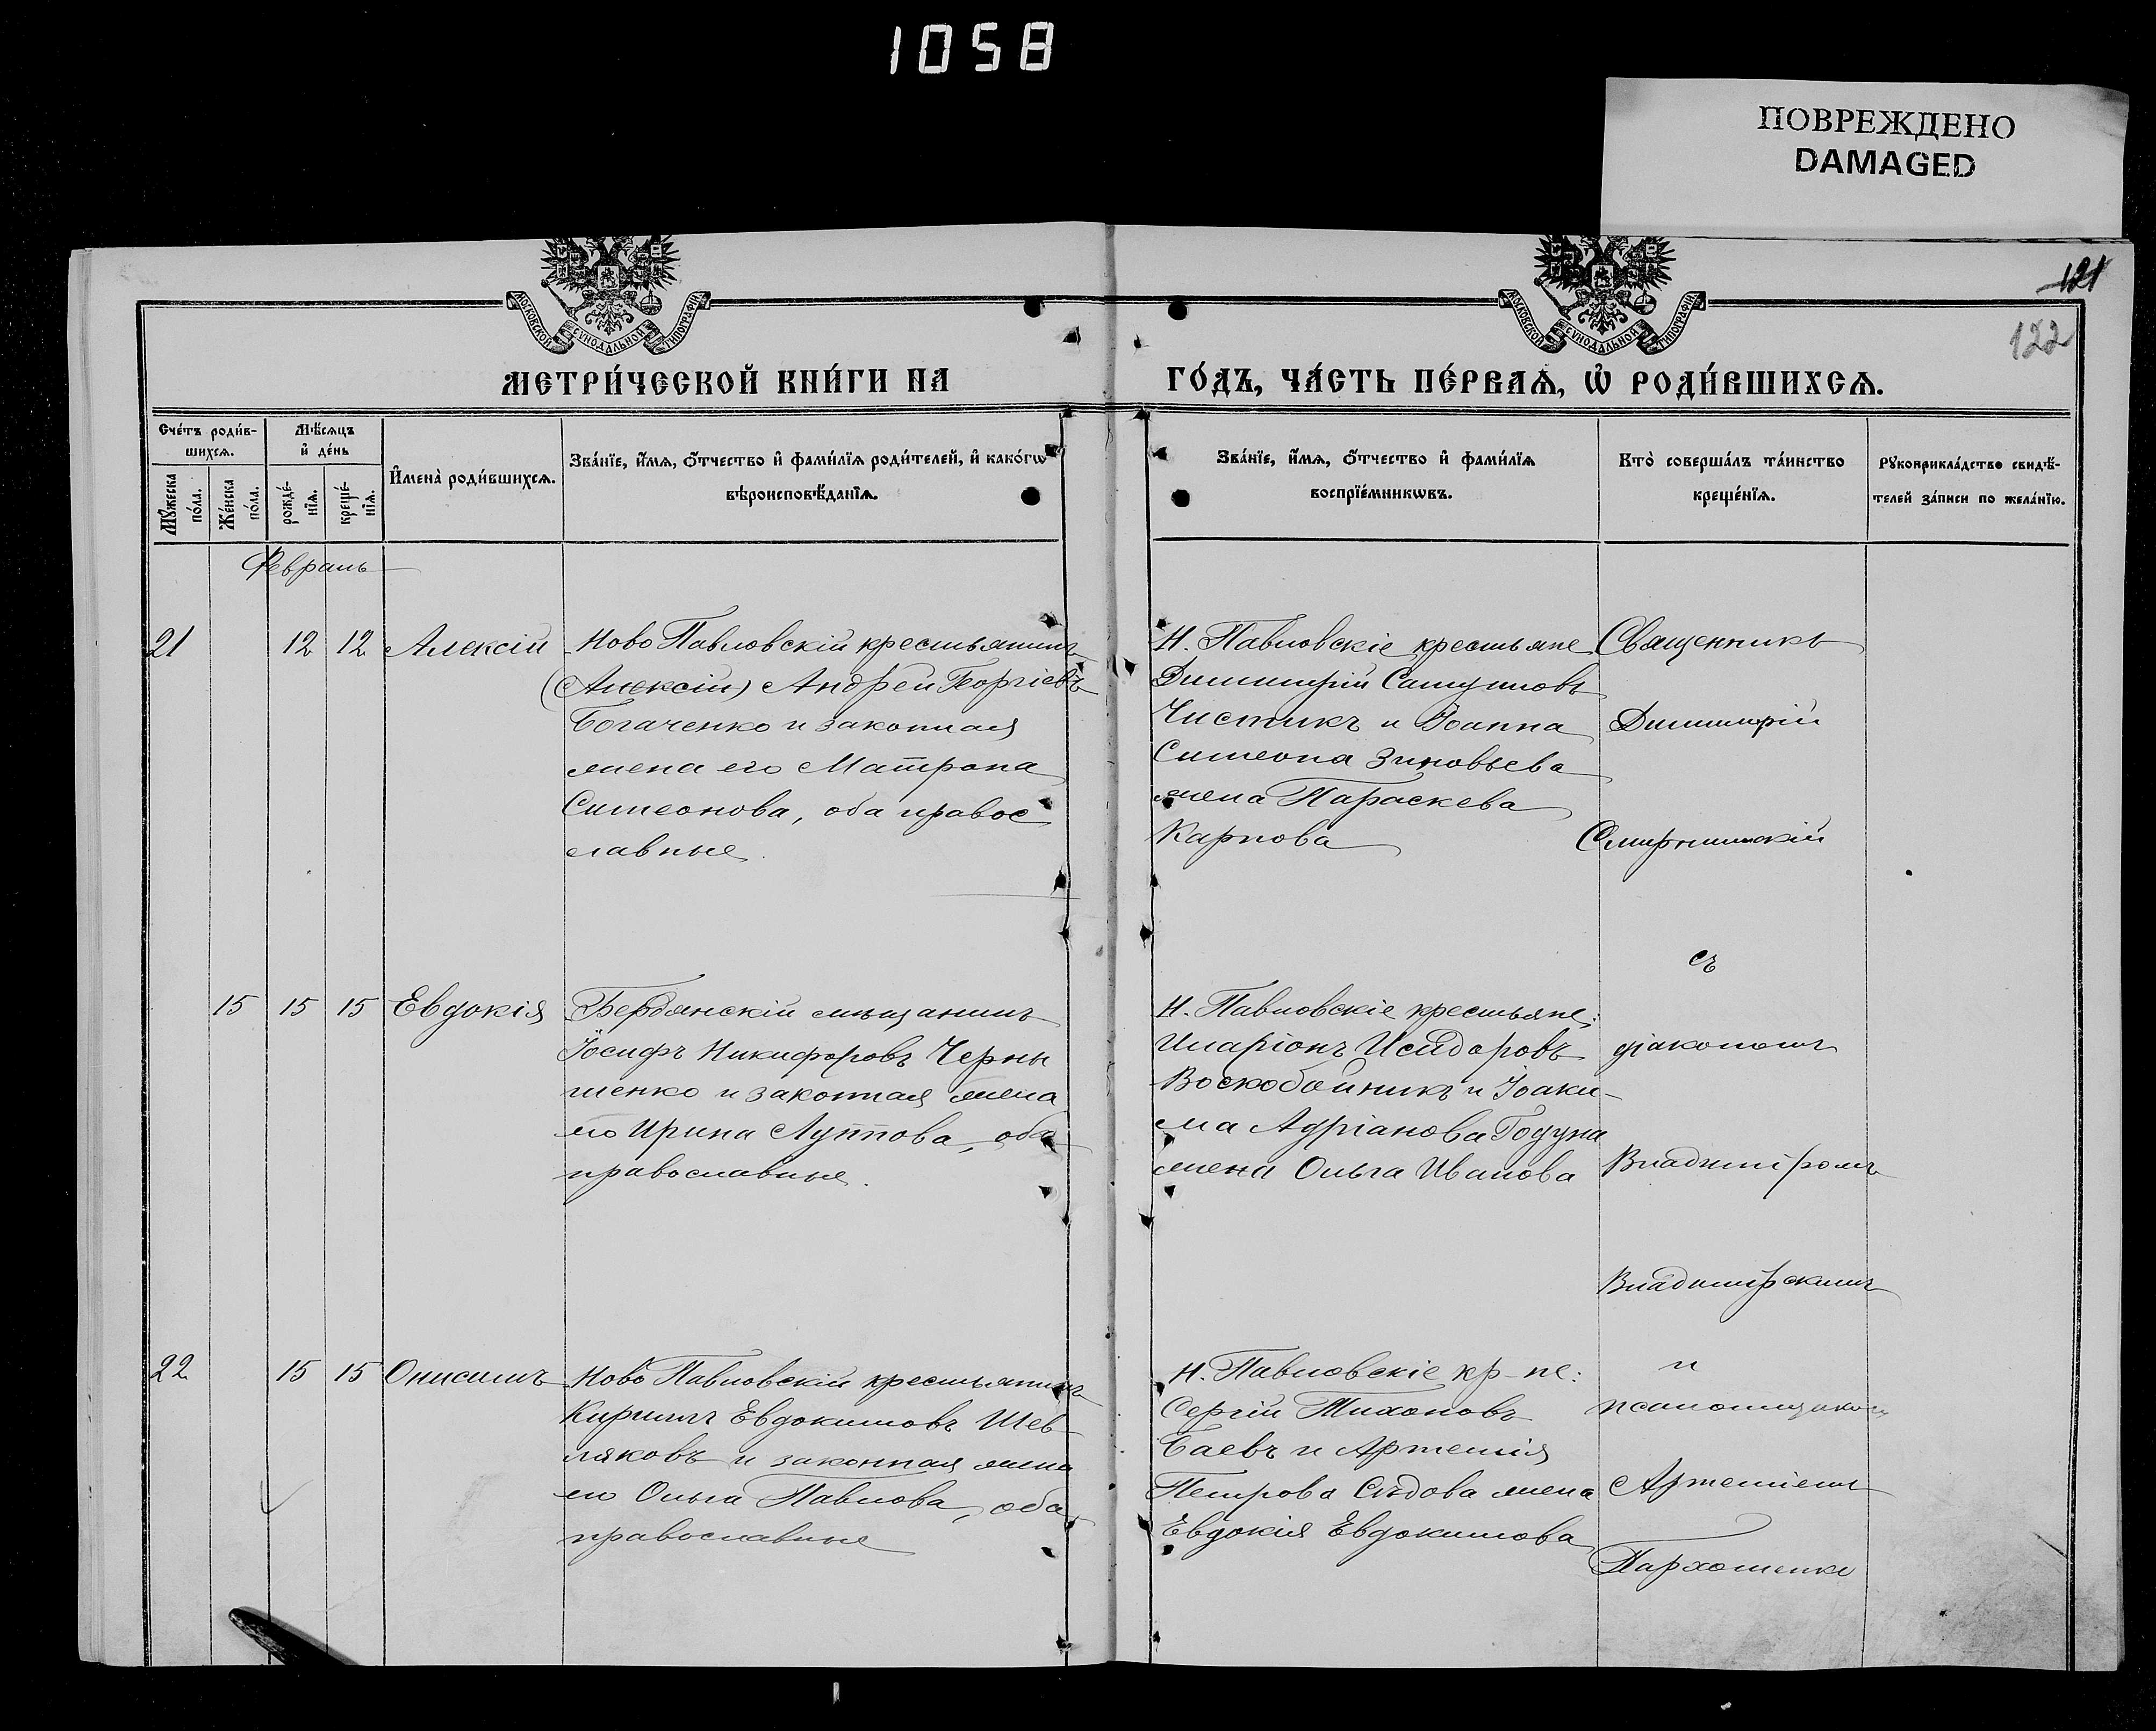 1058
ПОВРЕЖДЕНО
DAMAGED
МОСКОВСКОЙ СѴНОДАЛЬНОЙ ТИПОГРАФІИ
МОСКОВСКОЙ СѴНОДАЛЬНОЙ ТИПОГРАФІИ
121
122
МЕТРИ́ЧЕСКОЙ КНИ́ГИ НА
ГО́ДЪ, ЧА́СТЬ ПЕ́РВАѦ, Ѡ҆ РОДИ́ВШИХСѦ.
Сче́тъ роди́в-
шихсѧ.
Мѣ́сѧцъ
и҆ де́нь
Мꙋ́жеска
по́ла.
Же́нска
по́ла.
рожде́-
нїѧ.
креще́-
нїѧ.
И҆мена̀ роди́вшихсѧ.
Зва́нїе, и҆́мѧ, ѻ҆́тчество и҆ фами́лїѧ роди́телей, и҆ како́гѡ
вѣроисповѣ́данїѧ.
Зва́нїе, и҆́мѧ, ѻ҆́тчество и҆ фами́лїѧ
воспрїе́мникѡвъ.
Кто̀ соверша́лъ та́инство
креще́нїѧ.
Рꙋкоприкла́дство свидѣ́-
телей за́писи по жела́нїю.
Февраль
21 12 12 Алексій
Ново Павловскій крестьянинъ
(Алексій) Андрей Георгіевъ
Богаченко и законная
жена его Матрона
Симеонова, оба правос
лавные.
Н. Павловскіе крестьяне
Димитрій
Чистикъ и Іоанна
Симеона Зиновьева
жена Параскева
Карпова
Священникъ
Димитрій
съ
15 15 15 Евдокія
Бердянскій мѣщанинъ
Іосифъ Никифоровъ Черны
шенко и законная жена
его Ирина Луппова, оба
православные.
Н. Павловскіе крестьяне:
Иларіонъ Исидоровъ
Воскобойникъ и Іоаки-
ма Адріанова Годуна
жена Ольга Иванова
діакономъ
Владиміромъ
Владимірскимъ
22 15 15 Онисимъ
Ново Павловскій крестьянинъ
Кириллъ Евдокимовъ Шев
ляковъ и законная жена
его Ольга Павлова, оба
православные
Н. Павловскіе кр-не:
Сергій Тихоновъ
Баевъ и Артемія
Петрова Сѣдова жена
Евдокія Евдокимова
и
псаломщикомъ
Артеміемъ
Пархоменко